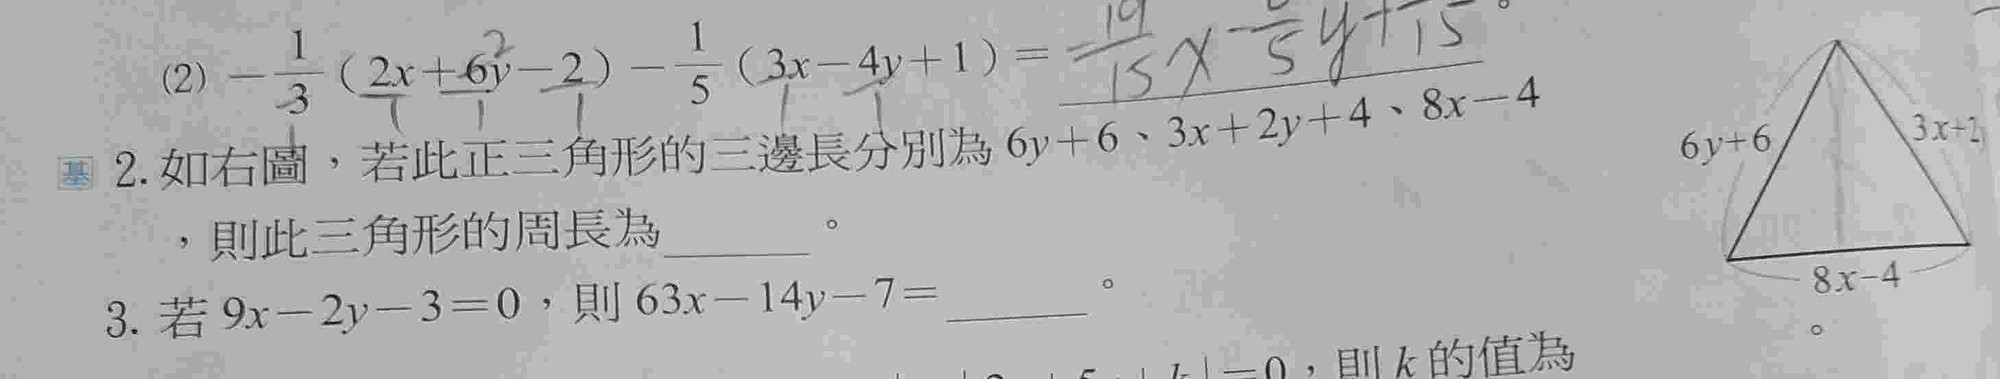 (2) －1/3（2x＋6y－2）－1/5（3x－4y＋1）＝
基 2. 如右圖，若此正三角形的三邊長分別為 6y＋6、3x＋2y＋4、8x－4
，則此三角形的周長為______。
6y+6
3x+2
8x−4
3. 若 9x－2y－3＝0，則 63x－14y－7＝______。
＝0，則 k 的值為